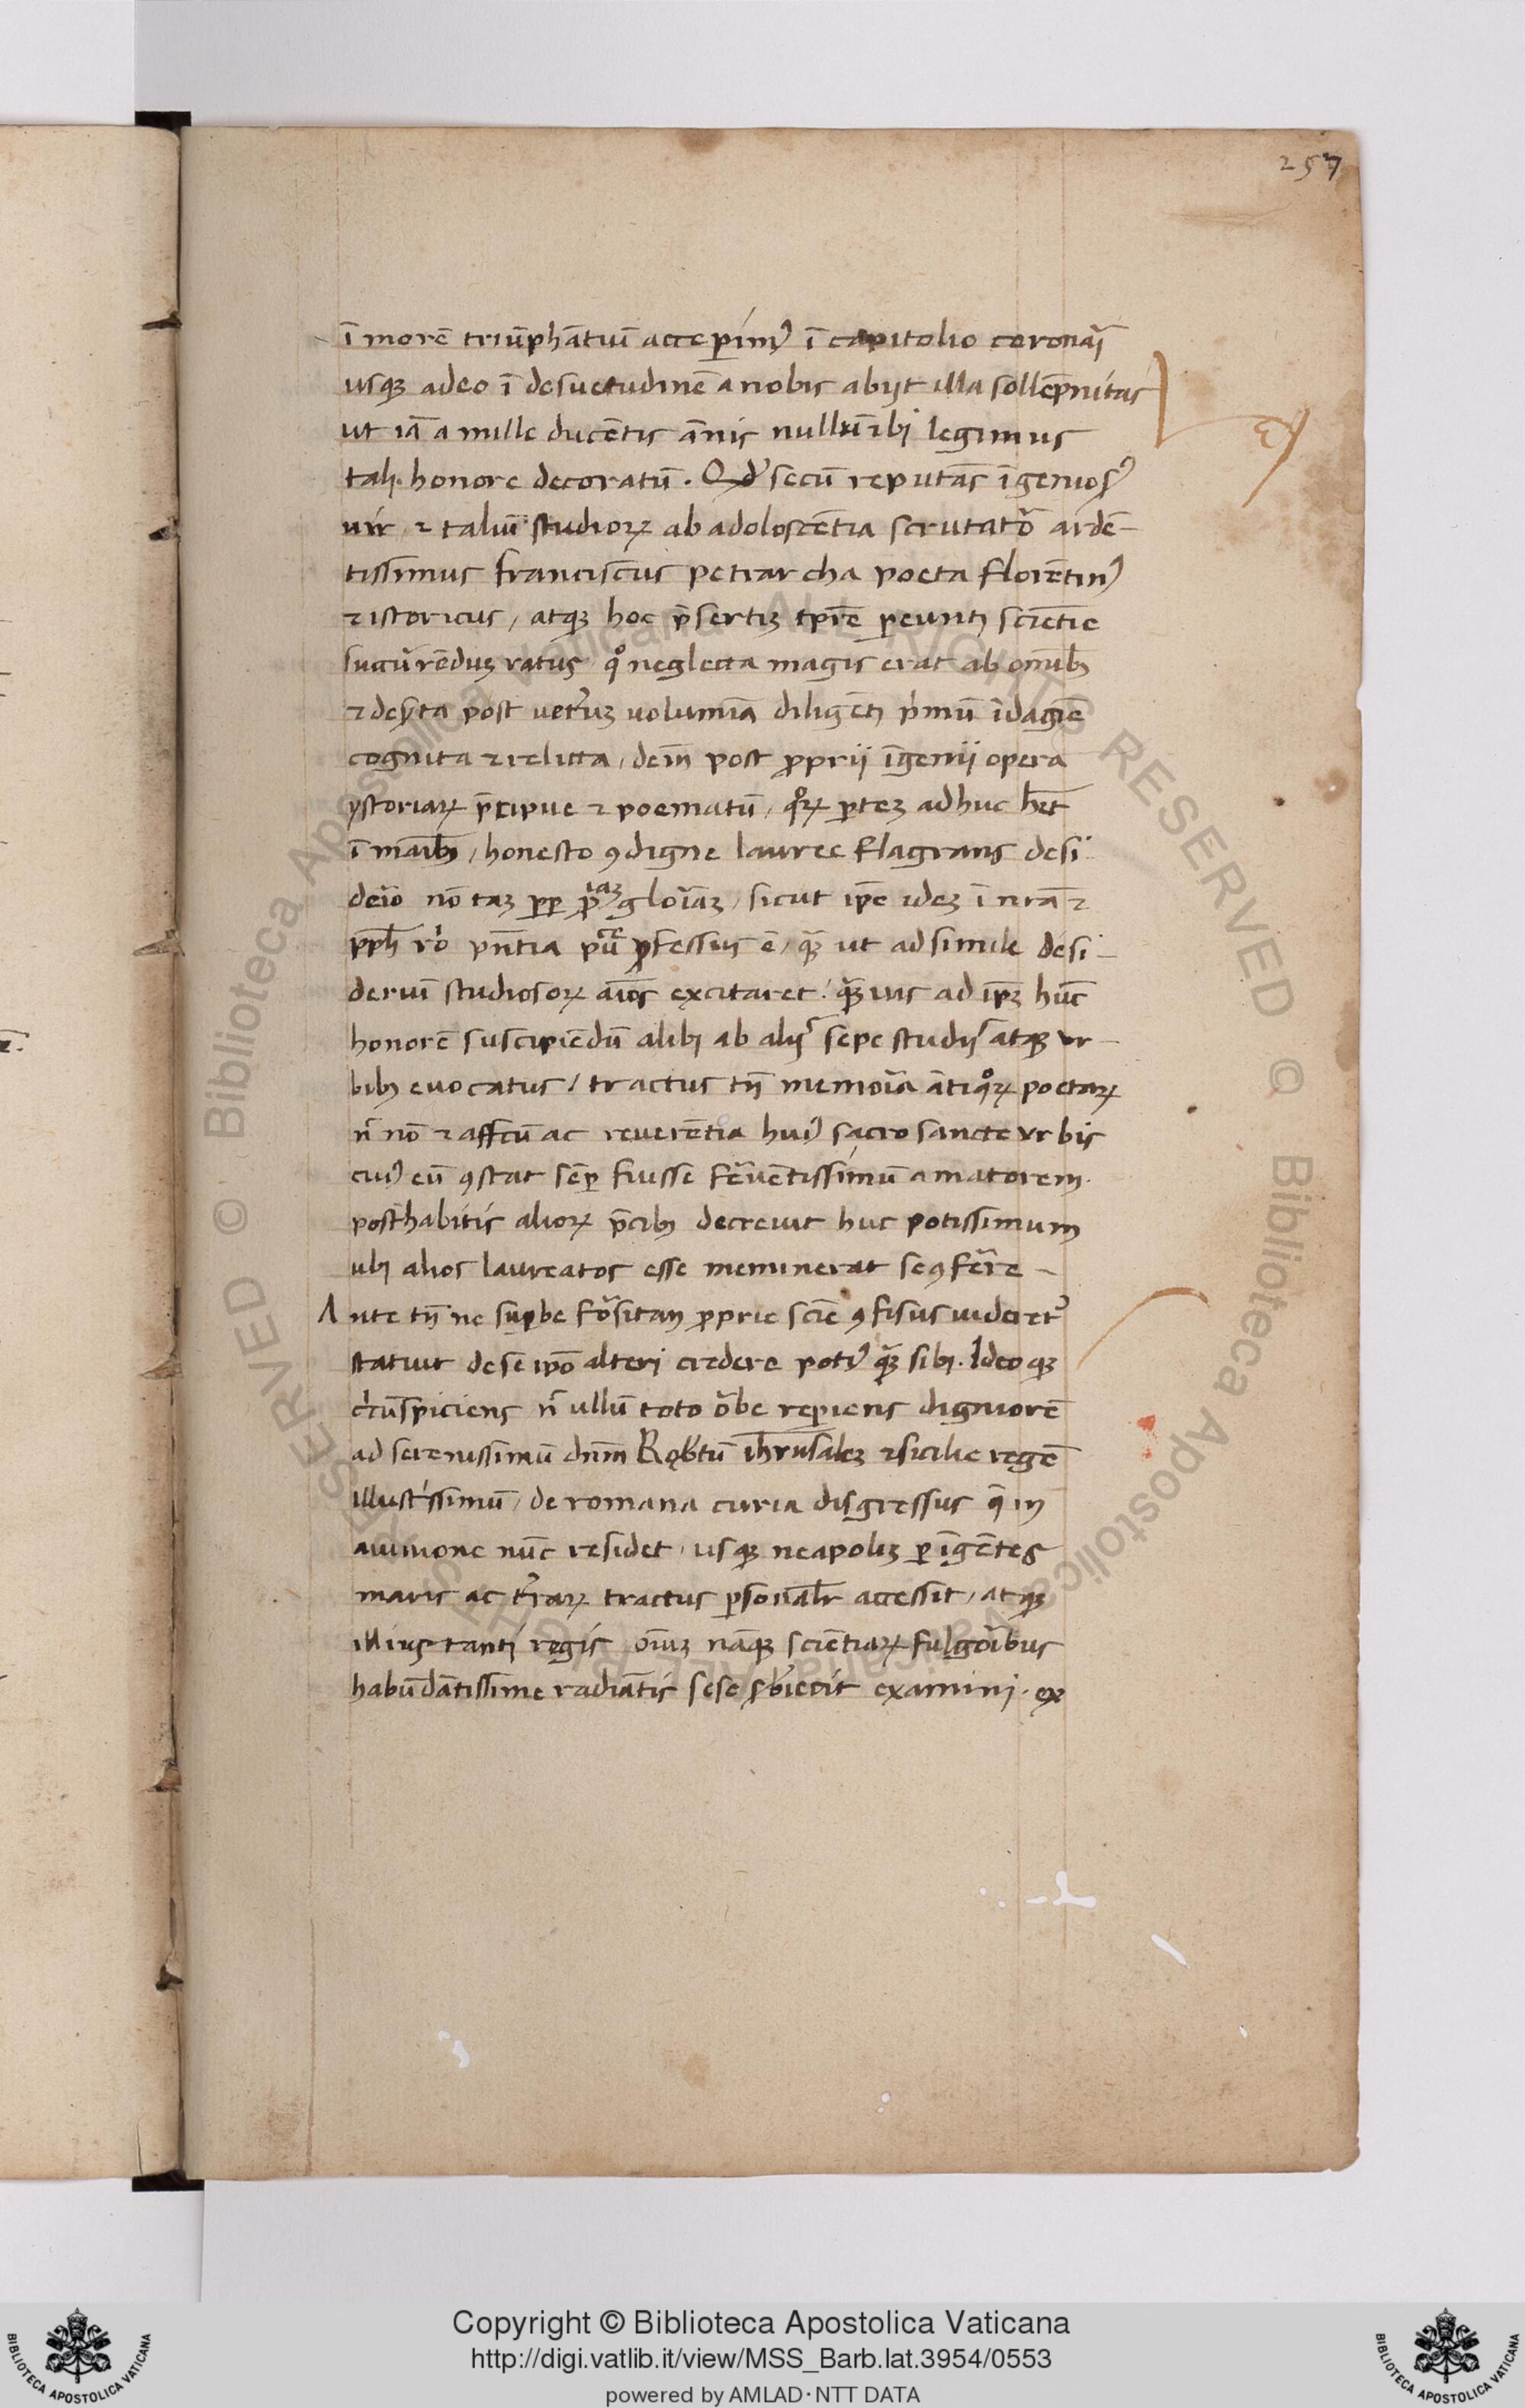 257
ī morē triūphātiū acceperimꝰ ī capitolio coronarī
usqꝫ adeo ī desuetudinē a nobis abijt illa sollēpnitas
ut iā a mille ducētis ānis nullū ibi legimus
tali honore decoratū. Qd̕ secū reputās īgeniosꝰ
uir ⁊ taliū studioꝝ ab adoloscētia scrutator ardē-
tissimus franciscus petrarcha poeta florētinꝰ
⁊ istoricus / atqꝫ hoc p̄sertiꝫ tp̄re ꝑeunti sciētie
succurrēduꝫ ratus qͦ neglecta magis erat ab omībꝫ
⁊ dest̕ta post ueteruꝫ uolumīa diligēti p̕mū īdagīe
cognita ⁊ relicta / dein̄ post ꝓprij īgenij opera
ystoriaꝝ p̄cipue ⁊ poematū / qͦꝝ ꝑteꝫ adhuc hēt
ī manibꝫ / honesto ꝯdigne lauree flagrans desi
derio nō taꝫ ꝓp ꝓpriaꝫ gloriaꝫ / sicut ipē ideꝫ ī nr̄a ⁊
pn̄tia ꝓfessus ē / qꝫ̄ ut ad simile desi-
deriū studiosoꝝ aīos excitaret: qꝫ̄uis ad ip̄ꝫ hūc
honorē suscipiēdū alibi ab alijs sepe studijs atqꝫ ur-
bibꝫ euocatus / tractus tn̄ memoria ātiqͦꝝ poetaꝝ
n̄ nō ⁊ affcū ac reuerētia huiꝰ sacrosancte urbis
cuiꝰ eū ꝯstat sēꝑ fuisse feruētissimū amatorem.
posthabitis alioꝝ p̄cibꝫ decreuit huc potissimum
ubi alios laureatos esse meminerat se ꝯferre -
Ante tn̄ ne suꝑbe forsitan ꝓprie sciē ꝯfisus uideret̕
statuit de se ip̄o alteri credere potiꝰ qꝫ̄ sibi. Ideo qꝫ
circūspiciens n̄ ullū toto orbe reꝑiens digniorē
ad serenissimū dn̄m Robertū ihrusaleꝫ ⁊ sicilie regē
illustrissimū / de romana curia disgressus q̄ in
auinione nūc residet / usqꝫ neapoliꝫ ꝑ īgētes
maris ac terraꝝ tractus ꝑsonal̕r accessit / atqꝫ
illius tanti regis oīuꝫ nāqꝫ sciētiaꝝ fulgoribus
habūdātissime radiātis sese subiecit examini. ex
Copyright © Biblioteca Apostolica Vaticana
http://digi.vatlib.it/view/MSS_Barb.lat.3954/0553
powered by AMLAD·NTT DATA